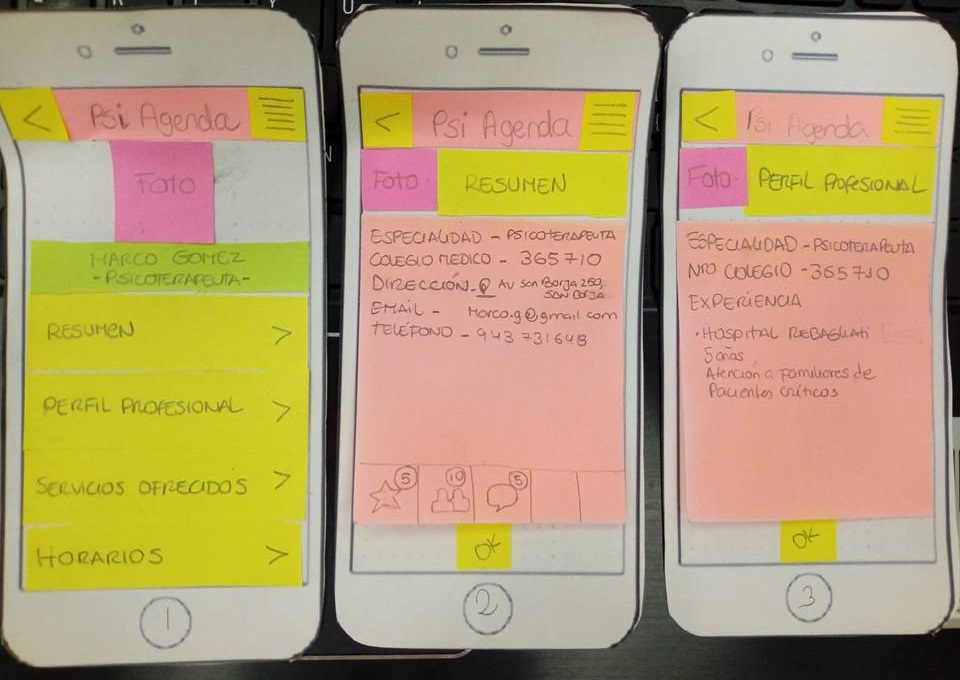 <
Psi Agenda
FOTO
MARCO GOMEZ
-PSICOTERAPEUTA-
RESUMEN >
PERFIL PROFESIONAL >
SERVICIOS OFRECIDOS >
HORARIOS >
1
<
Psi Agenda
FOTO
RESUMEN
ESPECIALIDAD - PSICOTERAPEUTA
COLEGIO MEDICO - 365710
DIRECCIÓN - Av San Borja 250,
SAN BORJA
EMAIL - Marco.g@gmail com
TELÉFONO - 943 731648
5
10
5
OK
2
<
Psi Agenda
FOTO
PERFIL PROFESIONAL
ESPECIALIDAD - PSICOTERAPEUTA
NRO COLEGIO - 365710
EXPERIENCIA
• HOSPITAL REBAGLIATI
5 años
Atención a familiares de
Pacientes críticos
OK
3